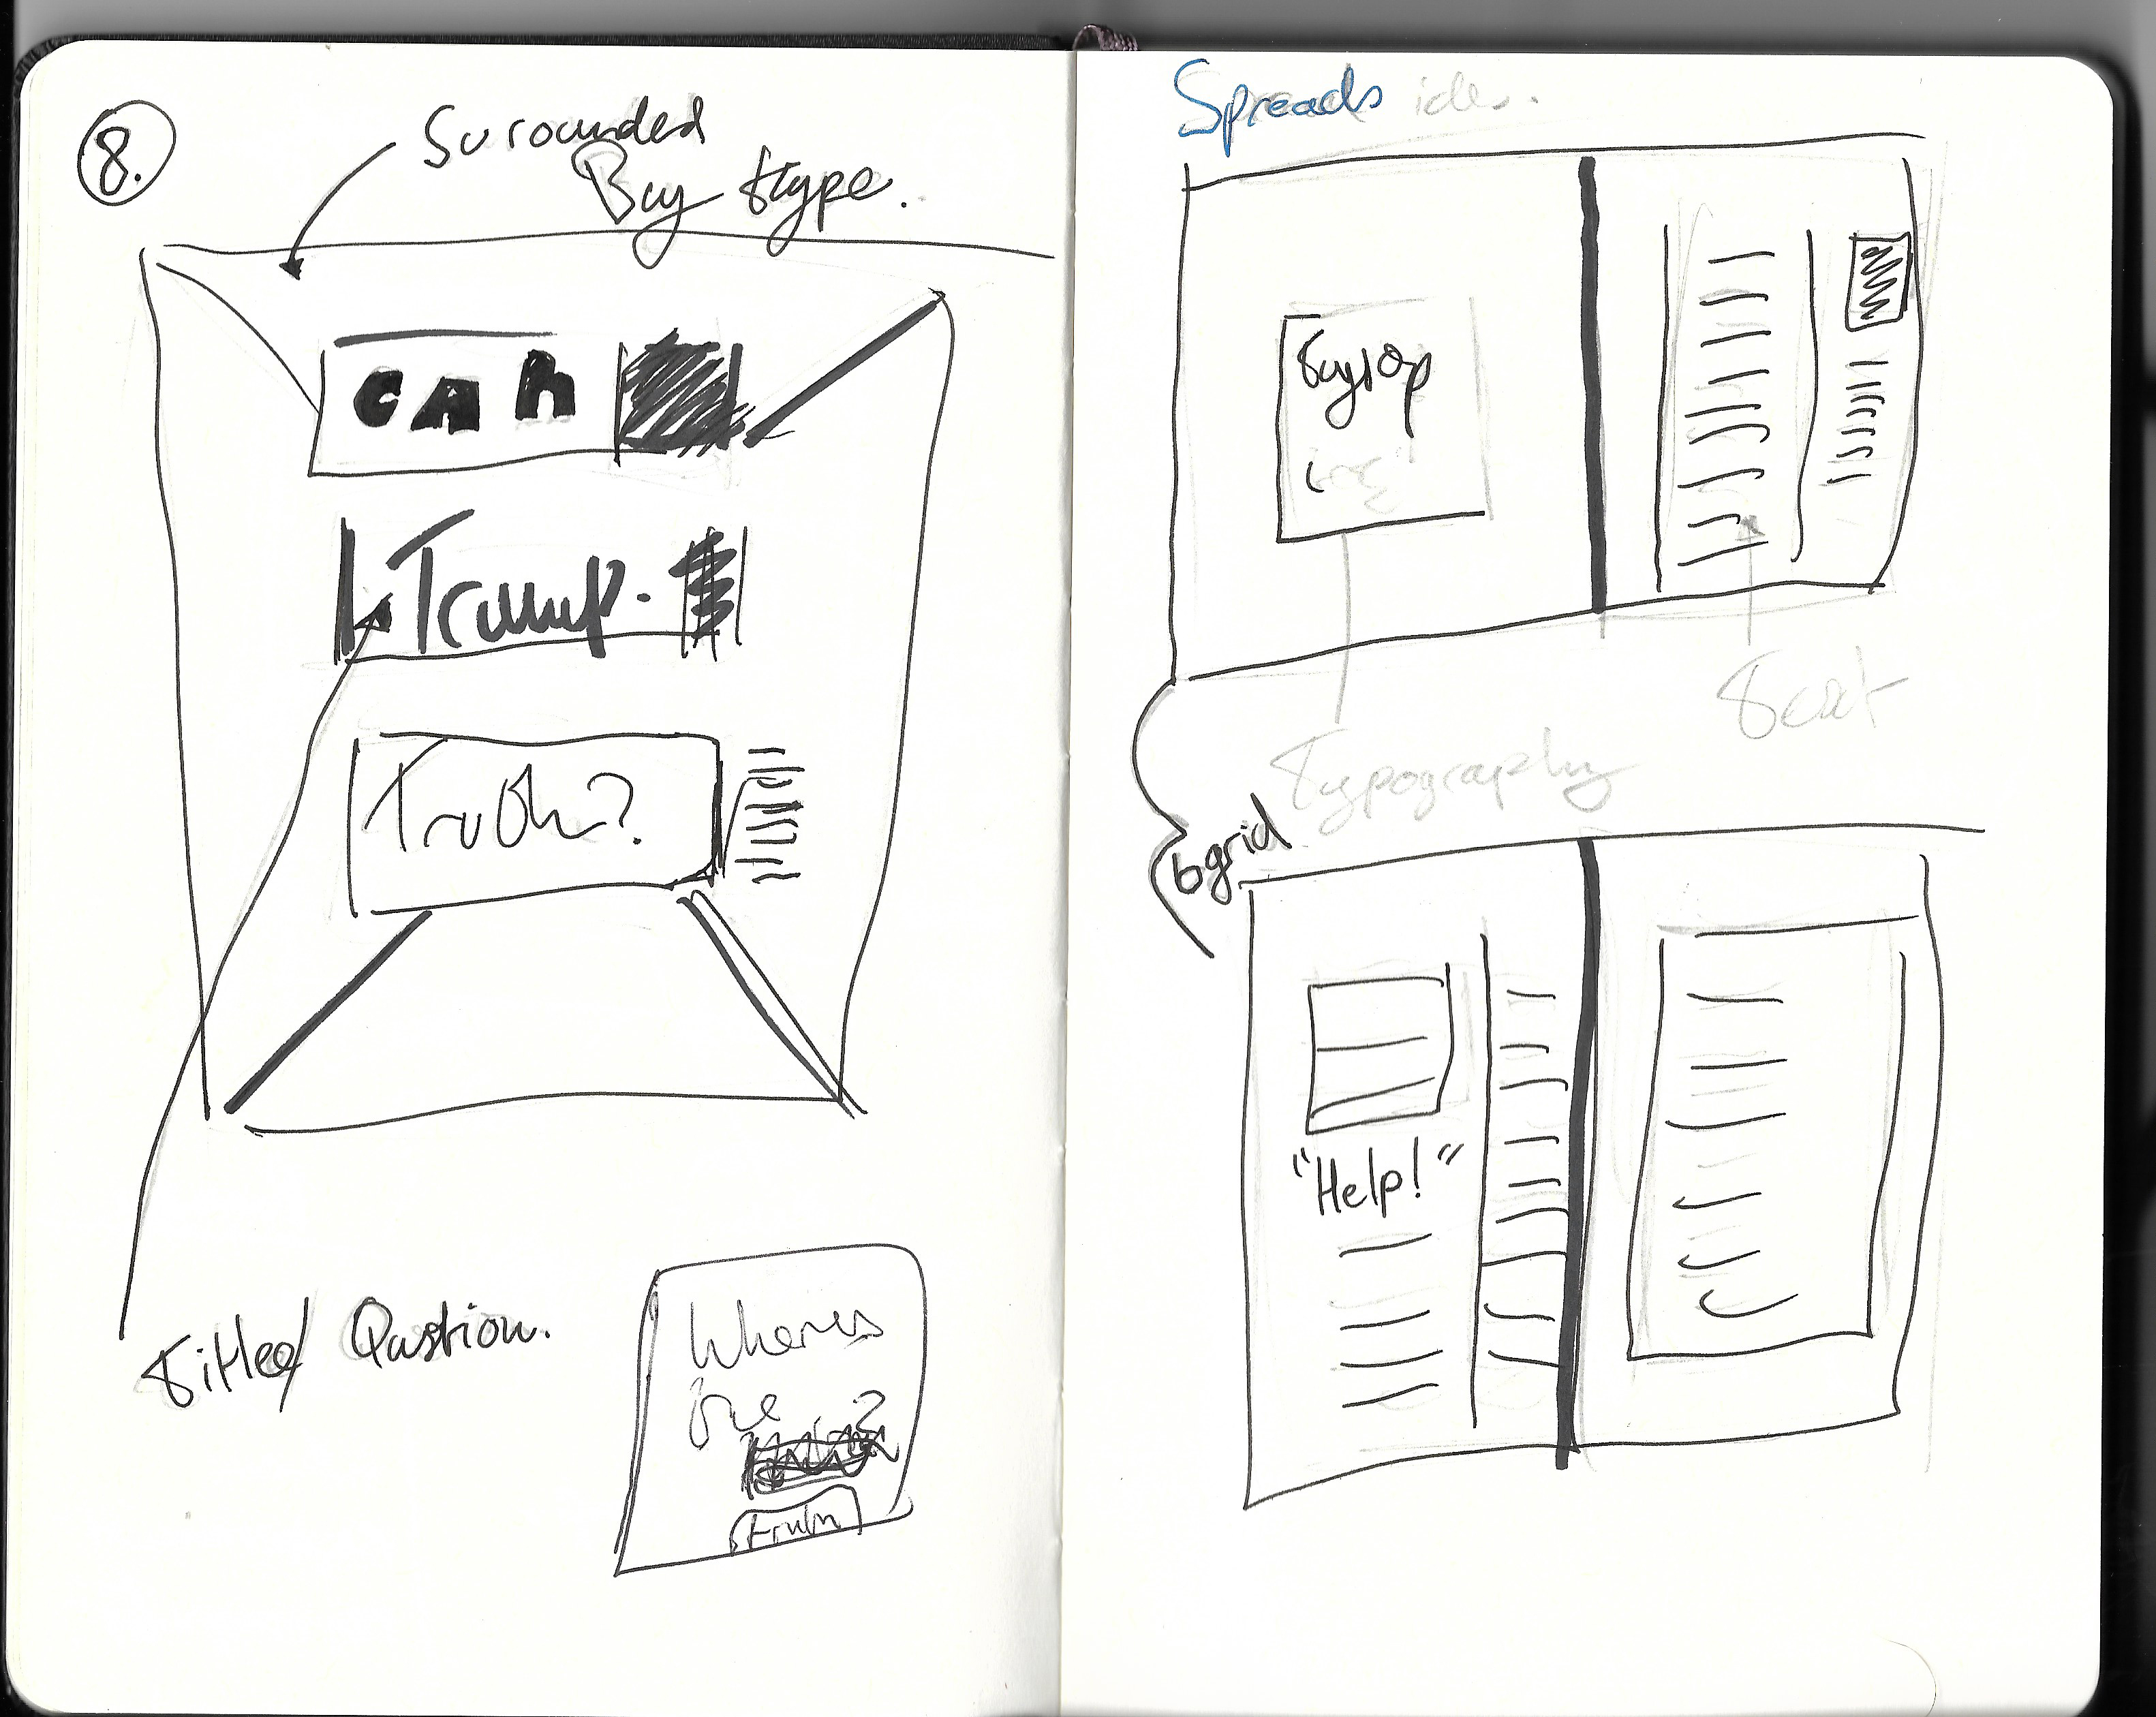 8.
Surounded
By type.
CAN
Trump.
Truth?
Title/ Qustion.
Wheres
the
?
truth
Spreads ides.
Text
Typography
6 grid
"Help!"